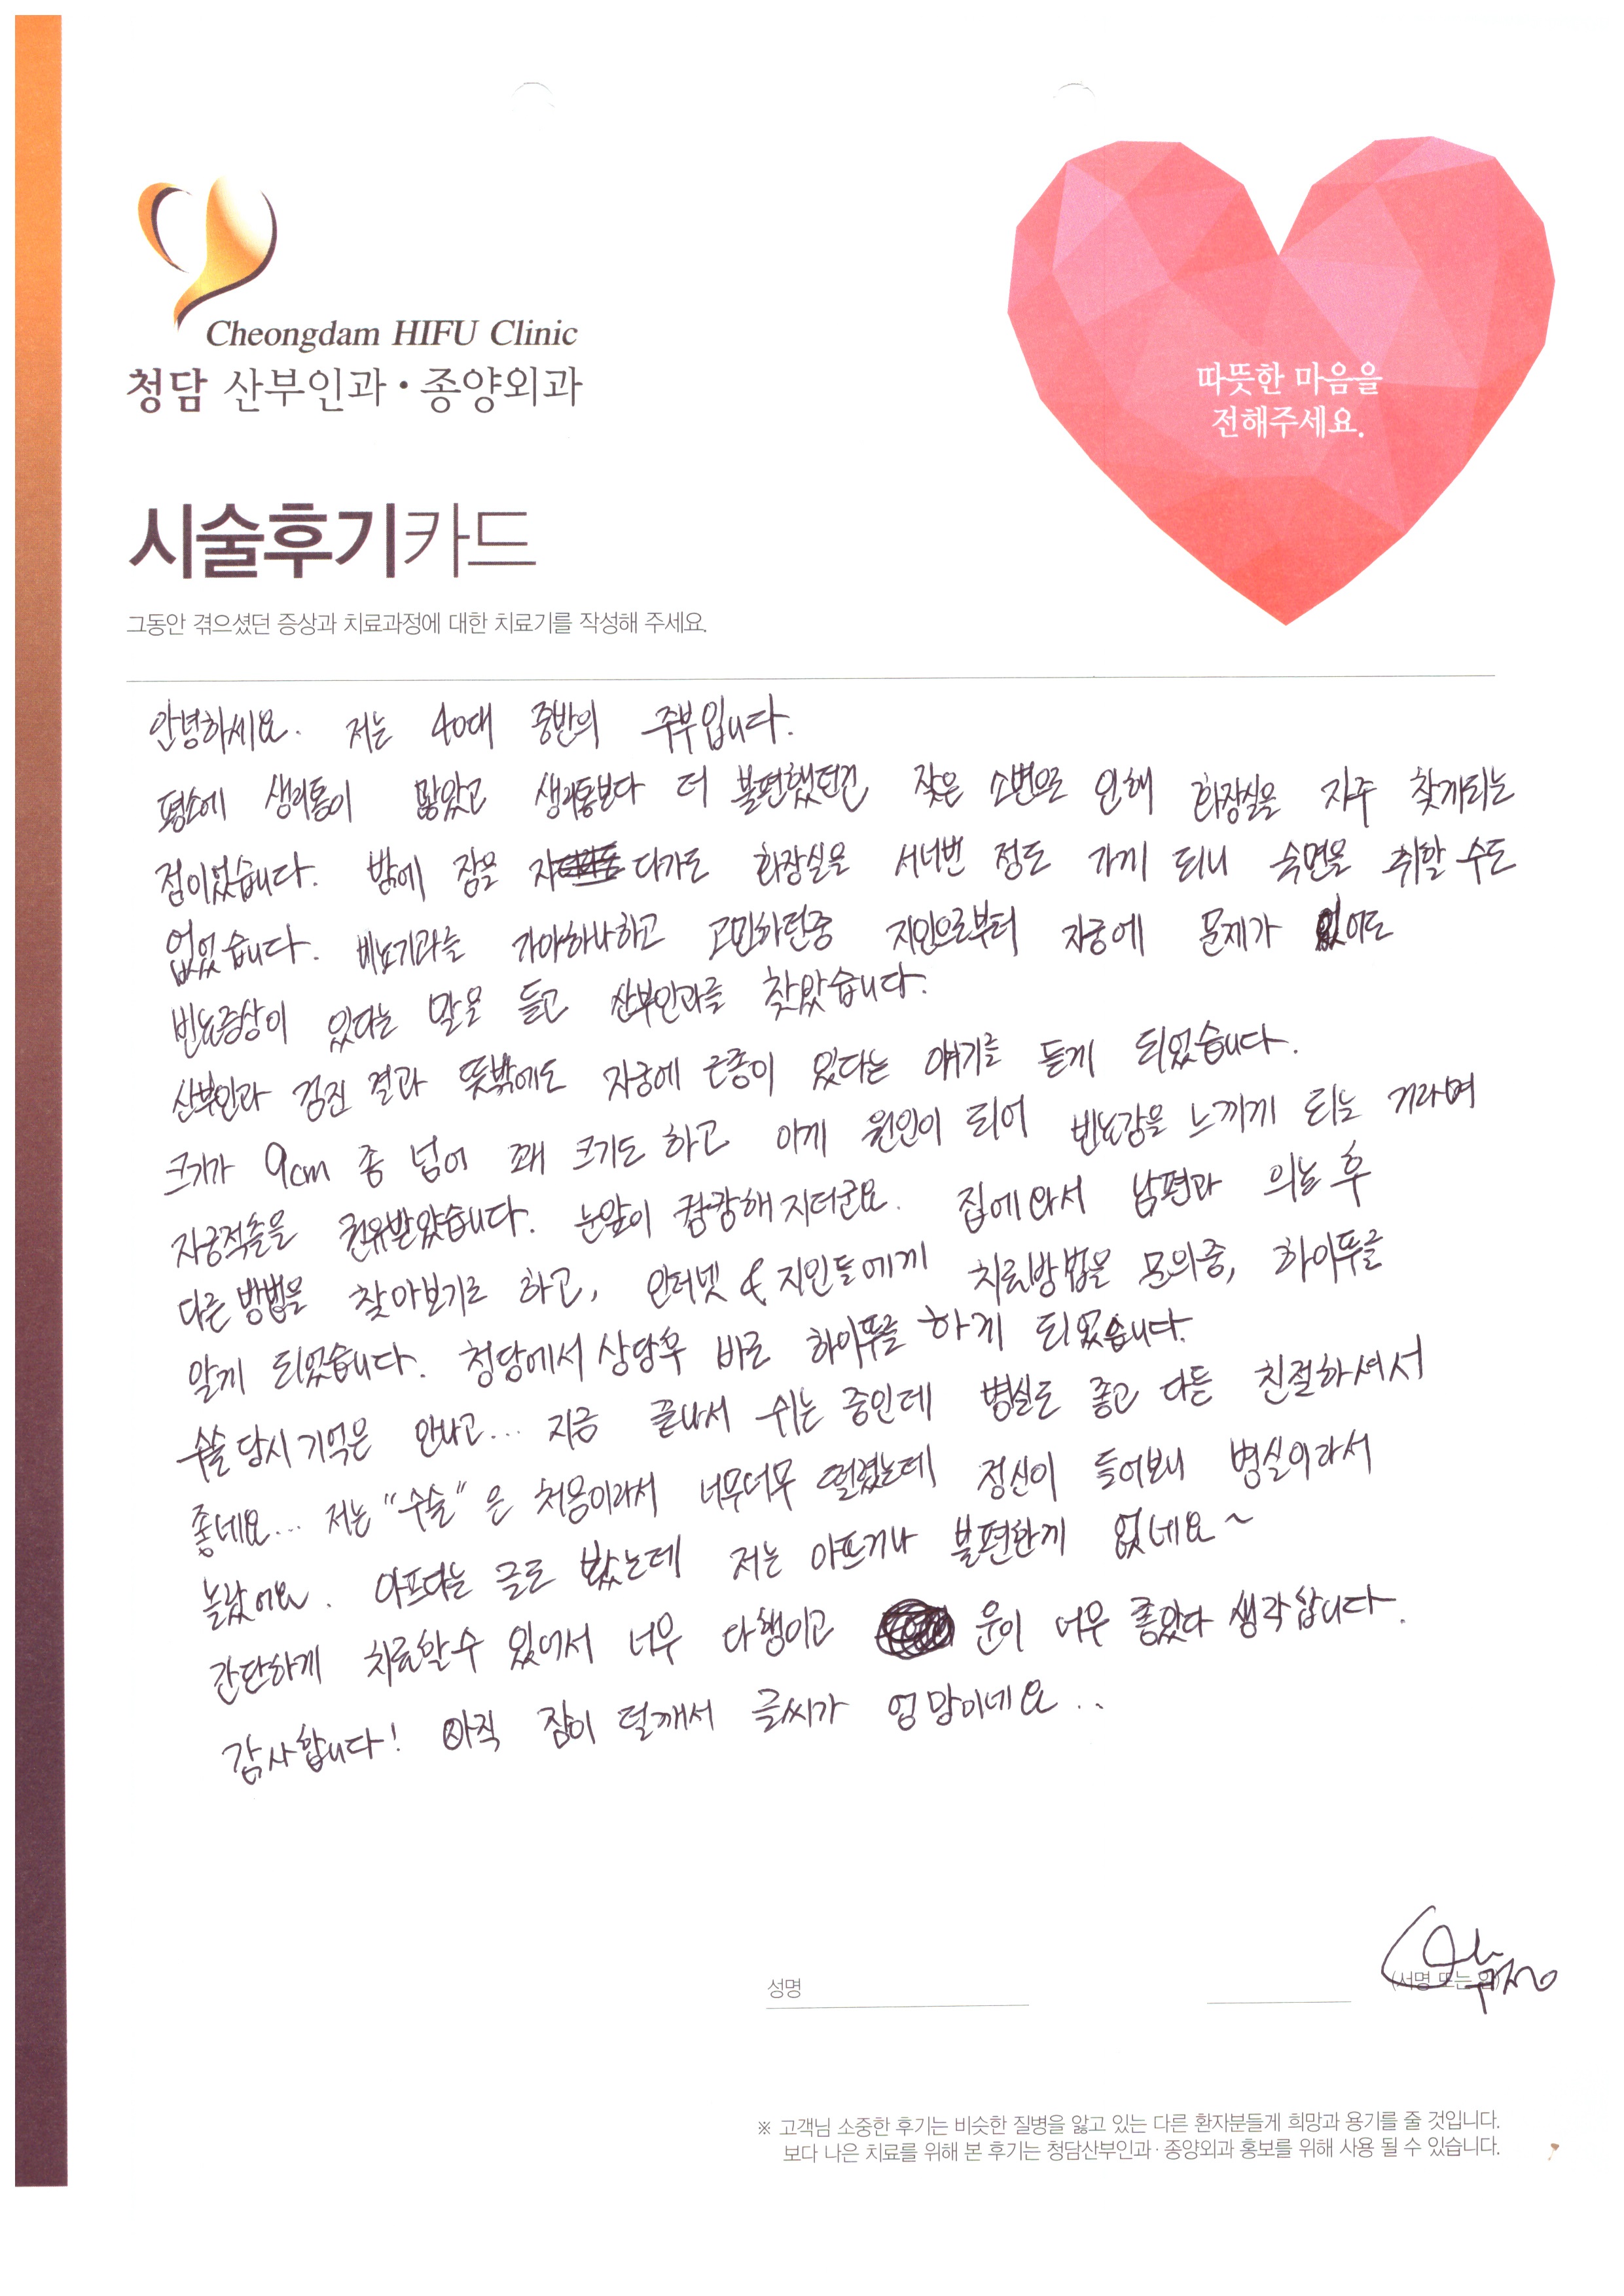 Cheongdam HIFU Clinic
청담 산부인과·종양외과
따뜻한 마음을
전해주세요.
시술후기카드
그동안 겪으셨던 증상과 치료과정에 대한 치료기를 작성해 주세요.
안녕하세요. 저는 40대 중반의 주부입니다.
평소에 생리통이 많았고 생리통보다 더 불편했던건 잦은 소변으로 인해 화장실을 자주 찾게되는
점이었습니다. 밤에 잠을 자다가도 화장실을 서너번 정도 가게 되니 숙면을 취할 수도
없었습니다. 비뇨기과를 가야하나하고 고민하던중 지인으로부터 자궁에 문제가 있어도
빈뇨증상이 있다는 말을 듣고 산부인과를 찾았습니다.
산부인과 검진 결과 뜻밖에도 자궁에 근종이 있다는 얘기를 듣게 되었습니다.
크기가 9cm 좀 넘어 꽤 크기도 하고 이게 원인이 되어 빈뇨감을 느끼게 되는 거라며
자궁적출을 권유받았습니다. 눈앞이 캄캄해지더군요. 집에와서 남편과 의논 후
다른 방법을 찾아보기로 하고, 인터넷 & 지인들에게 치료방법을 문의중, 하이푸를
알게 되었습니다. 청담에서 상담후 바로 하이푸를 하게 되었습니다.
수술 당시 기억은 안나고... 지금 끝나서 쉬는 중인데 병실도 좋고 다들 친절하셔서
좋네요... 저는 "수술"은 처음이라서 너무너무 떨렸는데 정신이 들어보니 병실이라서
놀랐어요. 아프다는 글도 봤는데 저는 아프거나 불편한게 없네요~
간단하게 치료할수 있어서 너무 다행이고 운이 너무 좋았다 생각합니다.
감사합니다! 아직 잠이 덜깨서 글씨가 엉망이네요..
성명
(서명 또는 인)
※ 고객님 소중한 후기는 비슷한 질병을 앓고 있는 다른 환자분들게 희망과 용기를 줄 것입니다.
보다 나은 치료를 위해 본 후기는 청담산부인과·종양외과 홍보를 위해 사용 될 수 있습니다.